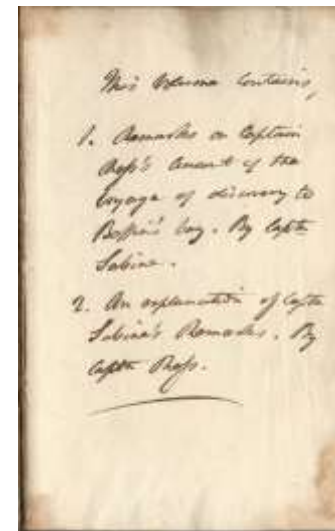 This Volume Contains,
1. Remarks on Captain
Ross's Account of the
Voyage of discovery to
Baffin's bay. By Captn
Sabine.
2. An explanation of Captn
Sabine's Remarks. By
Captn Ross.